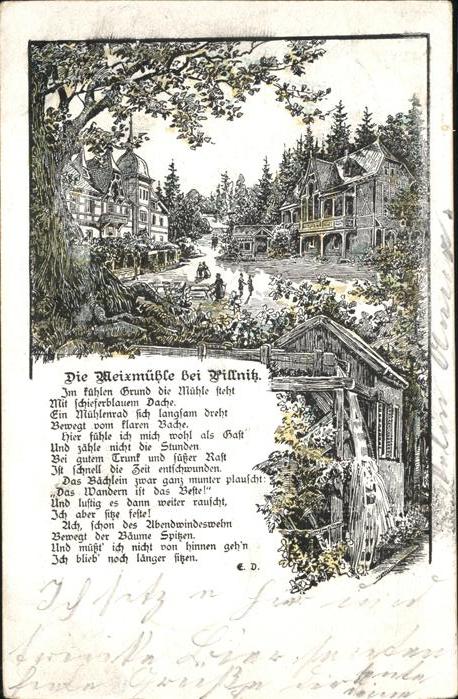 Die Meixmühle bei Pillnitz.
Im kühlen Grund die Mühle steht
Mit schieferblauem Dache.
Ein Mühlenrad sich langsam dreht
Bewegt vom klaren Bache.
Hier fühle ich mich wohl als Gast
Und zähle nicht die Stunden
Bei gutem Trunk und süßer Rast
Ist schnell die Zeit entschwunden.
Das Bächlein zwar ganz munter plauscht:
„Das Wandern ist das Beste!"
Und lustig es dann weiter rauscht,
Ich aber sitze feste!
Ach, schon des Abendwindeswehn
Bewegt der Bäume Spitzen.
Und müßt' ich nicht von hinnen geh'n
Ich blieb' noch länger sitzen.
E. D.
Ich sitze hier und
trinke Bier